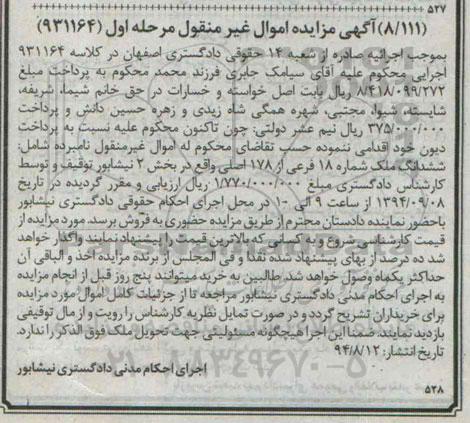 ۵۲۷
(۸/۱۱۱) آگهی مزایده اموال غیر منقول مرحله اول (۹۳۱۱۶۴)
بموجب اجرائیه صادره از شعبه ۱۴ حقوقی دادگستری اصفهان در کلاسه ۹۳۱۱۶۴
اجرایی محکوم علیه آقای سیامک جابری فرزند محمد محکوم به پرداخت مبلغ
۸/۴۱۸/۰۹۹/۲۷۲ ریال بابت اصل خواسته و خسارات در حق خانم شیما، شریفه،
شایسته، شیوا، مجتبی، شهره همگی شاه زیدی و زهره حسین دانش و پرداخت
۳۷۵/۰۰۰/۰۰۰ ریال نیم عشر دولتی: چون تاکنون محکوم علیه نسبت به پرداخت
دیون خود اقدامی ننموده حسب تقاضای محکوم له اموال غیرمنقول نامبرده شامل:
ششدانگ ملک شماره ۱۸ فرعی از ۱۷۸ اصلی واقع در بخش ۲ نیشابور توقیف و توسط
کارشناس دادگستری مبلغ ۱/۷۷۰/۰۰۰/۰۰۰ ریال ارزیابی و مقرر گردیده در تاریخ
۱۳۹۴/۰۹/۰۸ از ساعت ۹ الی ۱۰ در محل اجرای احکام حقوقی دادگستری نیشابور
باحضور نماینده دادستان محترم از طریق مزایده حضوری به فروش برسد. مورد مزایده از
قیمت کارشناسی شروع و به کسانی که بالاترین قیمت را پیشنهاد نمایند واگذار خواهد
شد ده درصد از بهای پیشنهاد شده نقدا و فی المجلس از برنده مزایده اخذ و الباقی آن
حداکثر یکماه وصول خواهد شد. طالبین به خرید میتوانند پنج روز قبل از انجام مزایده
به اجرای احکام مدنی دادگستری نیشابور مراجعه تا از جزئیات کامل اموال مورد مزایده
برای خریداران تشریح گردد و در صورت تمایل نظریه کارشناس را رویت و از مال توقیفی
بازدید نمایند. ضمنا این اجرا هیچگونه مسئولیتی جهت تحویل ملک فوق الذکر را ندارد.
تاریخ انتشار: ۹۴/۸/۱۲
اجرای احکام مدنی دادگستری نیشابور
۰۲۱-۸۸۳۴۹۶۷۰-۵
۵۲۸